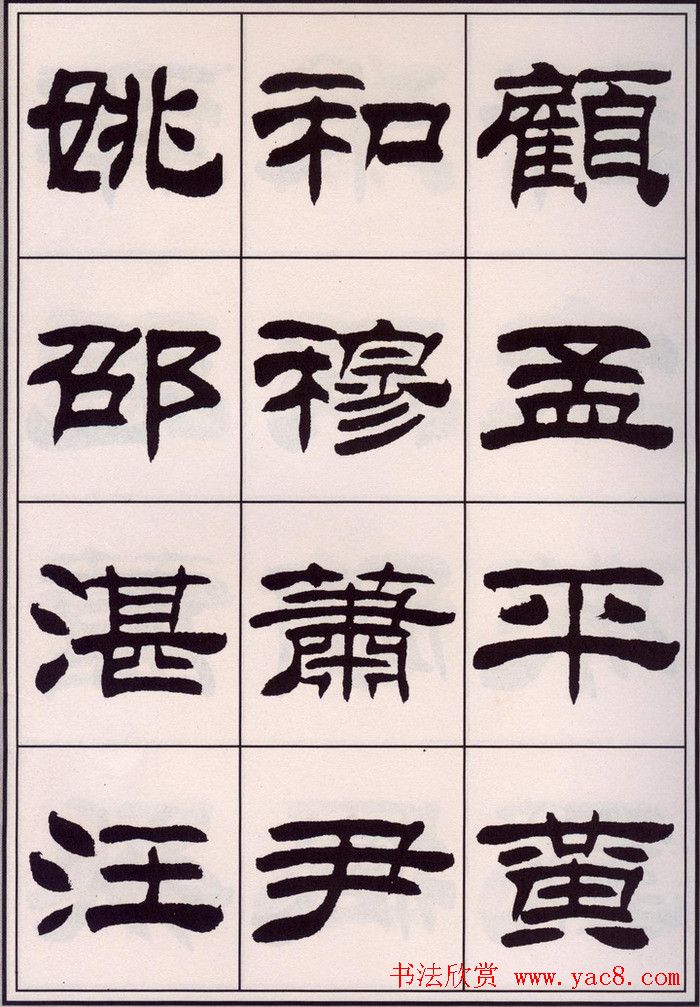 顧孟平黃
和穆蕭尹
姚邵湛汪
书法欣赏 www.yac8.com